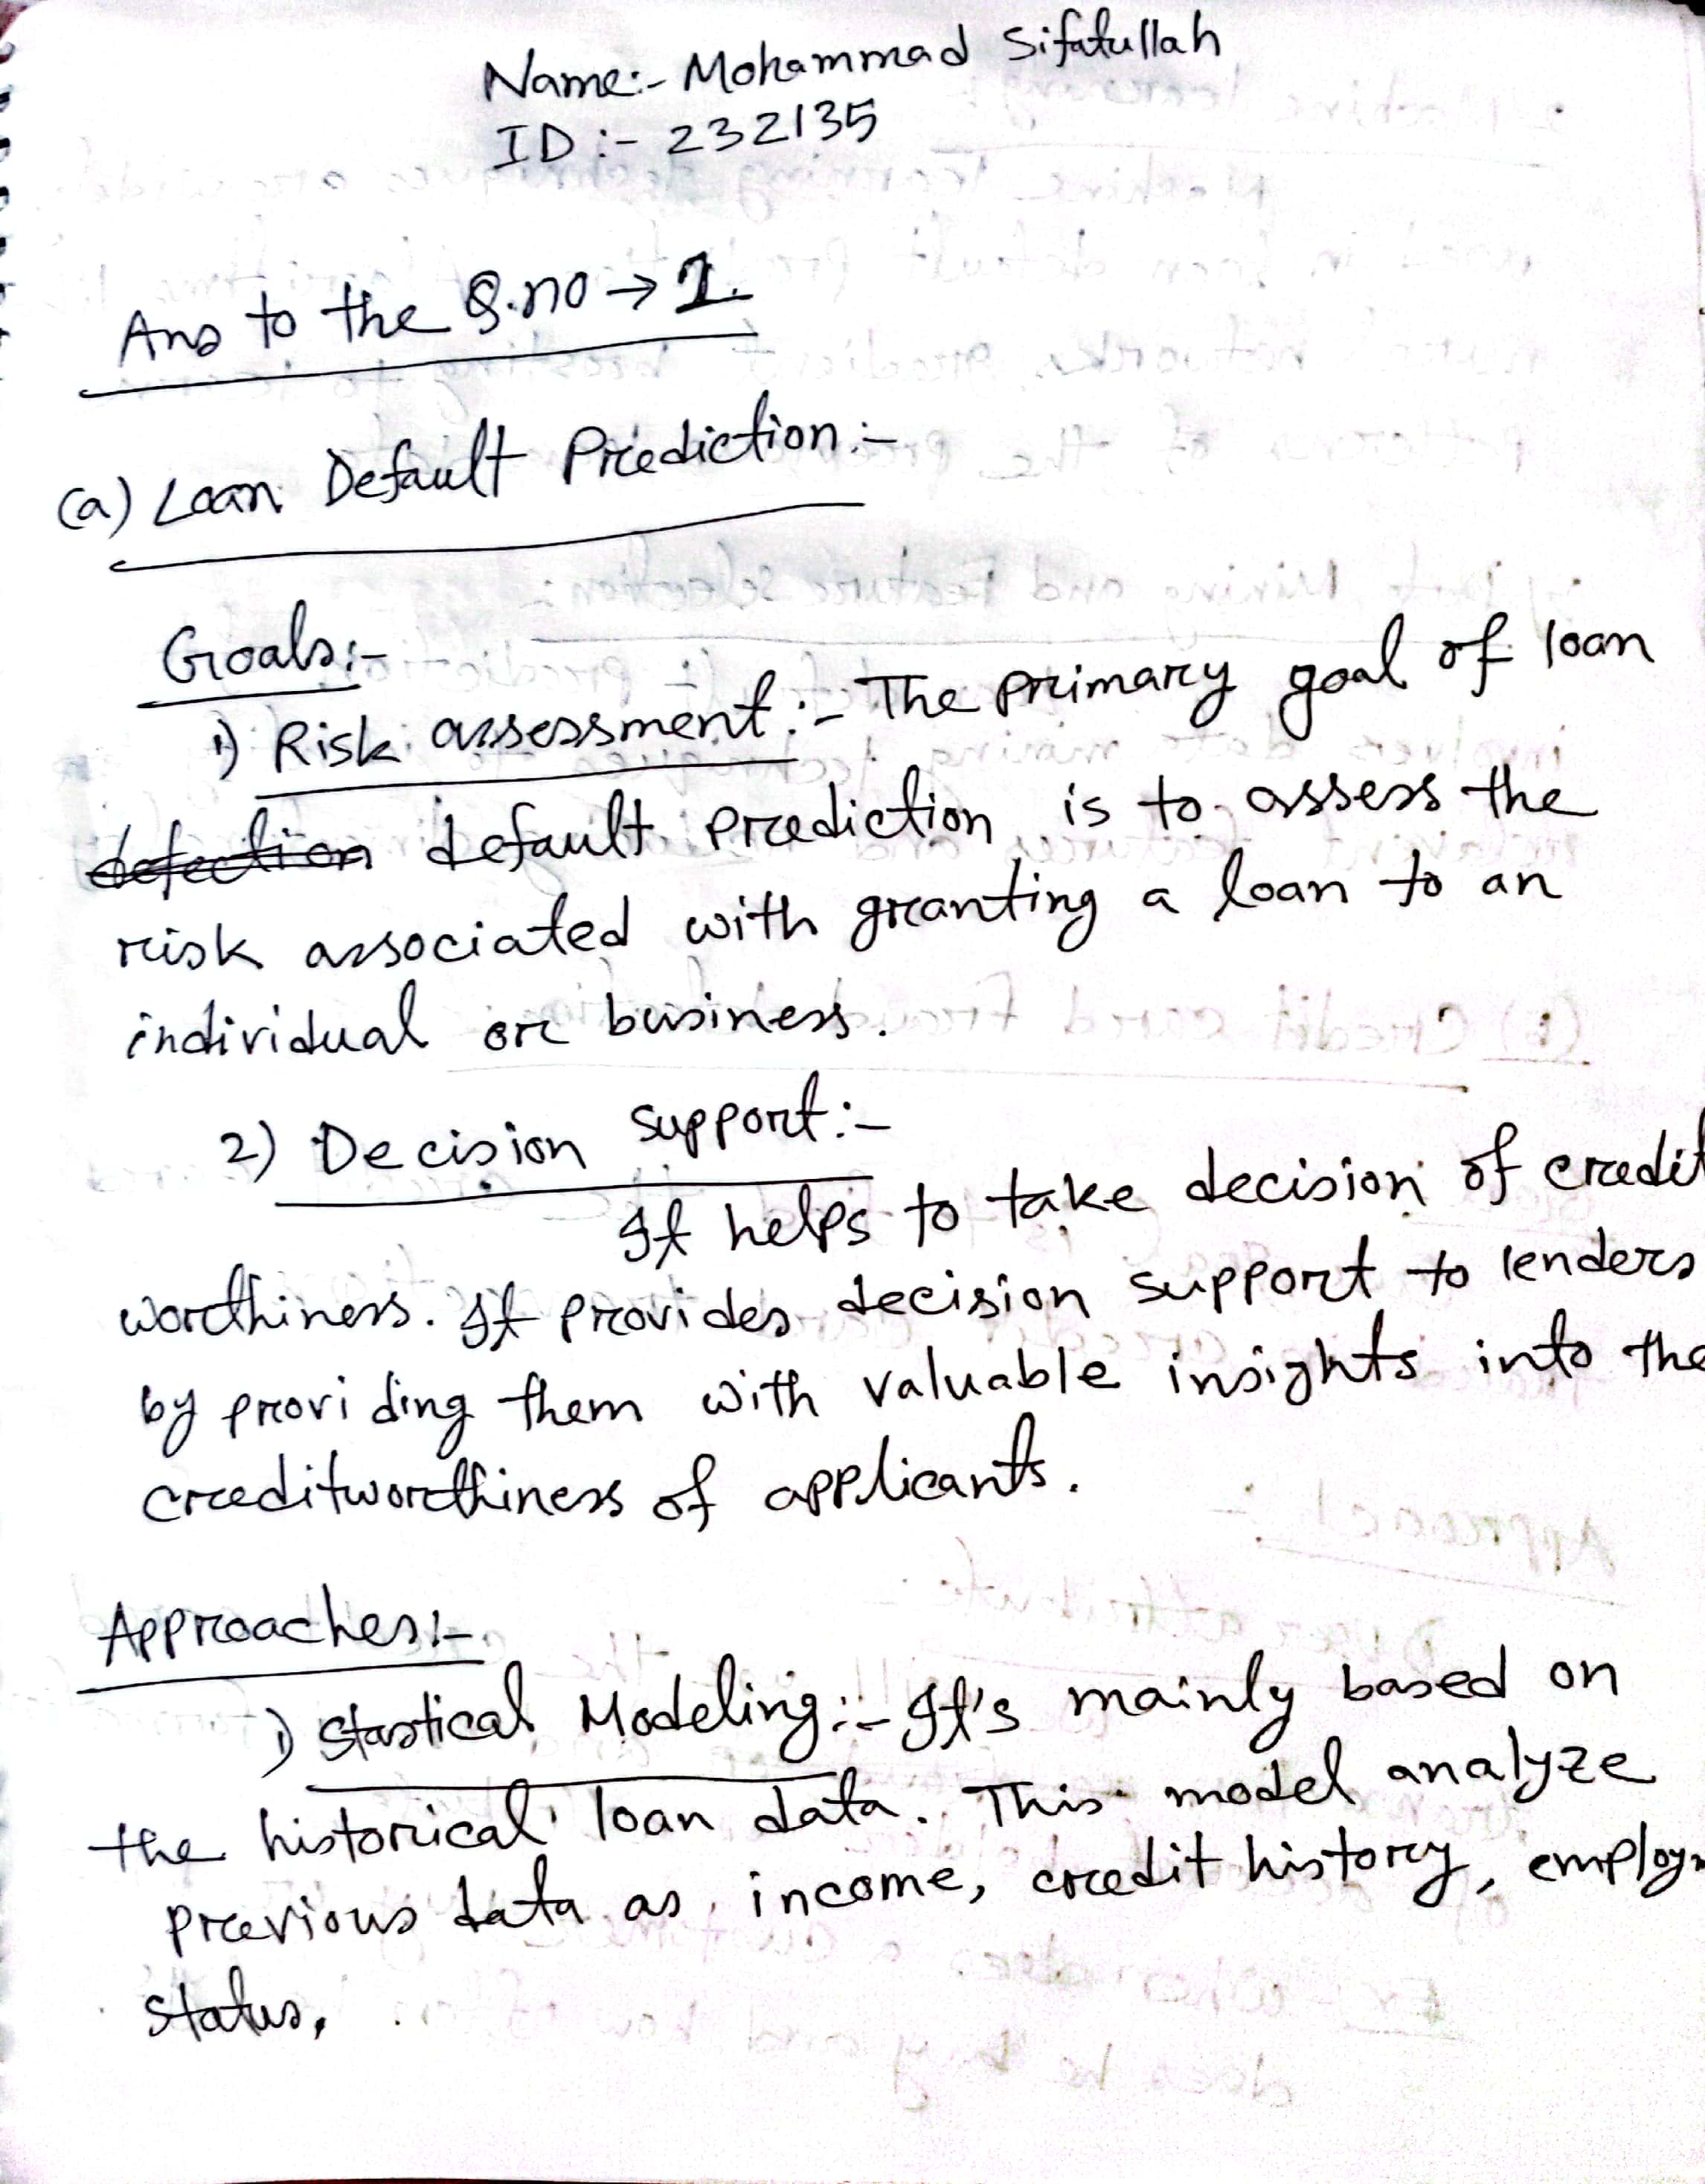 Name:- Mohammad Sifatullah
ID:- 232135
Ans to the Q.no → 1.
(a) Loan Default Prediction:-
Goals:-
1) Risk assessment:- The primary goal of loan
defection default prediction is to assess the
risk associated with granting a loan to an
individual or business.
2) Decision support:-
It helps to take decision of credit
worthiness. It provides decision support to lenders
by providing them with valuable insights into the
creditworthiness of applicants.
Approaches:-
1) Stastical Modeling:- It's mainly based on
the historical loan data. This model analyze
previous data as income, credit history, employm
status,